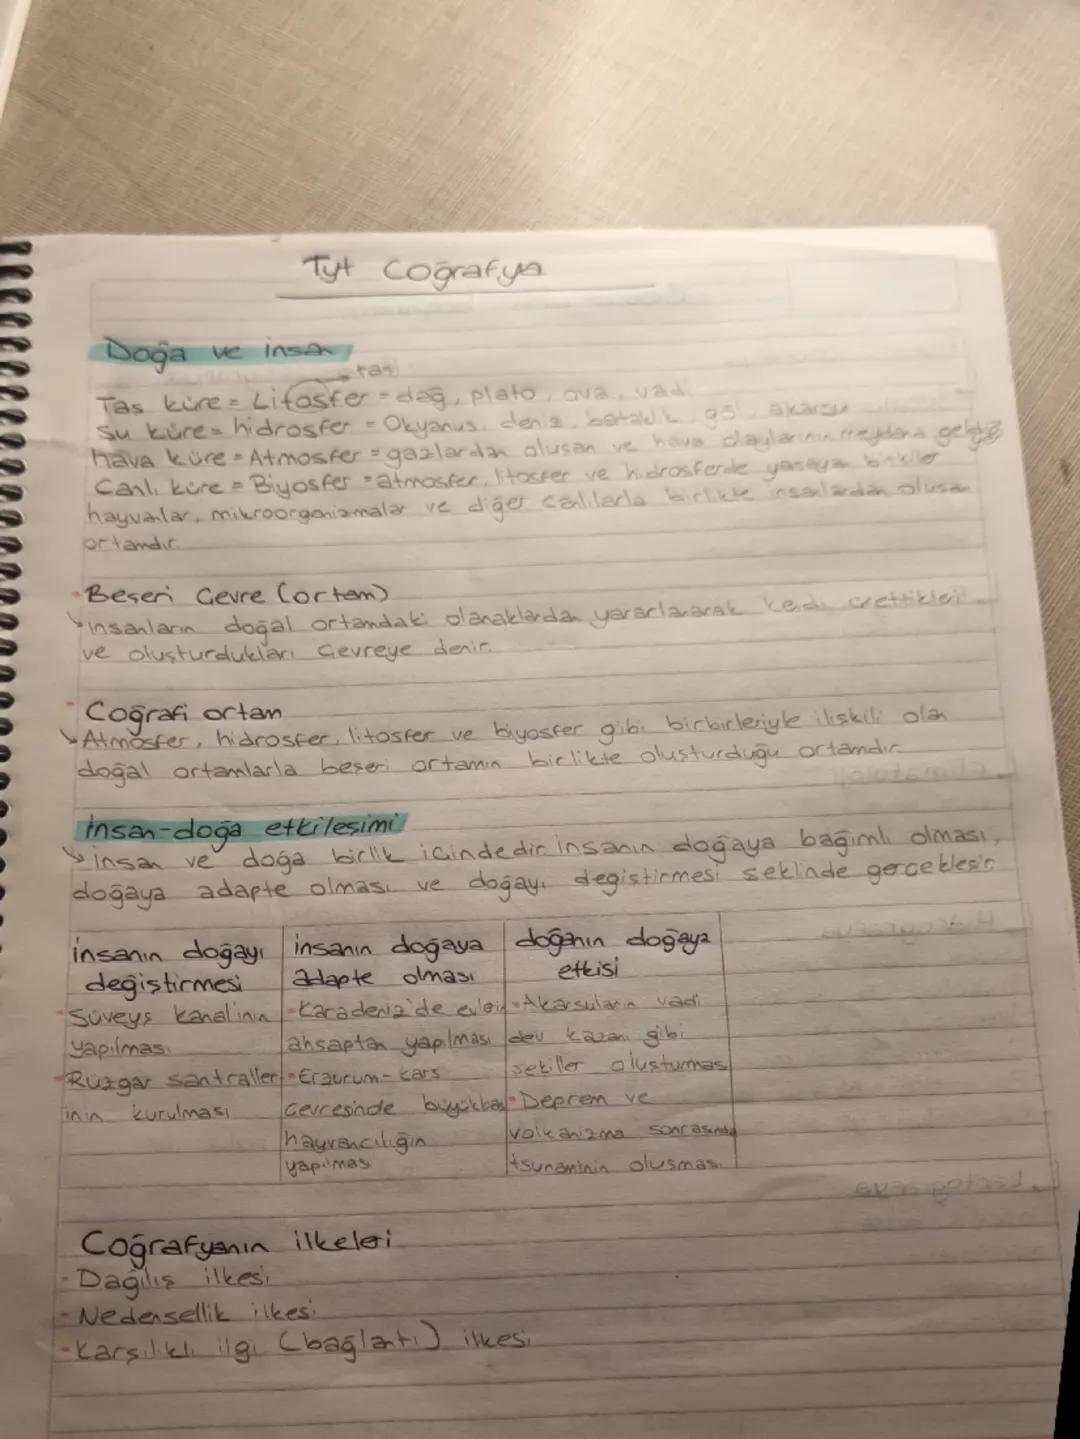 Tyt Coğrafya
Doğa ve insan
taş
Tas küre = Litosfer = dağ, plato, ova, vadi
Su küre = hidrosfer = Okyanus, deniz, bataklık, göl, akarsu
hava küre = Atmosfer = gazlardan oluşan ve hava olaylarının meydana geldiği
Canlı küre = Biyosfer = atmosfer, litosfer ve hidrosferde yaşayan bitkiler
hayvanlar, mikroorganizmalar ve diğer canlılarla birlikte insanlardan oluşan
ortamdır.
- Beşeri Çevre (ortam)
insanların doğal ortamdaki olanaklardan yararlanarak kendi ürettikleri
ve oluşturdukları çevreye denir.
Coğrafi ortam
Atmosfer, hidrosfer, litosfer ve biyosfer gibi birbirleriyle ilişkili olan
doğal ortamlarla beşeri ortamın birlikte oluşturduğu ortamdır
insan-doğa etkileşimi
insan ve doğa birlik içindedir. insanın doğaya bağımlı olması,
doğaya adapte olması ve doğayı değiştirmesi şeklinde gerçekleşir.
insanın doğayı değiştirmesi
- Süveyş Kanalının yapılması
- Rüzgar santrallerinin kurulması
insanın doğaya adapte olması
- Karadeniz'de evlerin ahşaptan yapılması
- Erzurum-kars çevresinde büyükbaş hayvancılığın yapılması
doğanın doğaya etkisi
- Akarsuların vadi dev kazanı gibi şekiller oluşturması
- Deprem ve volkanizma sonrasında tsunaminin oluşması
Coğrafyanın ilkeleri
- Dağılış ilkesi
- Nedensellik ilkesi
- Karşılıklı ilgi (bağlantı) ilkesi